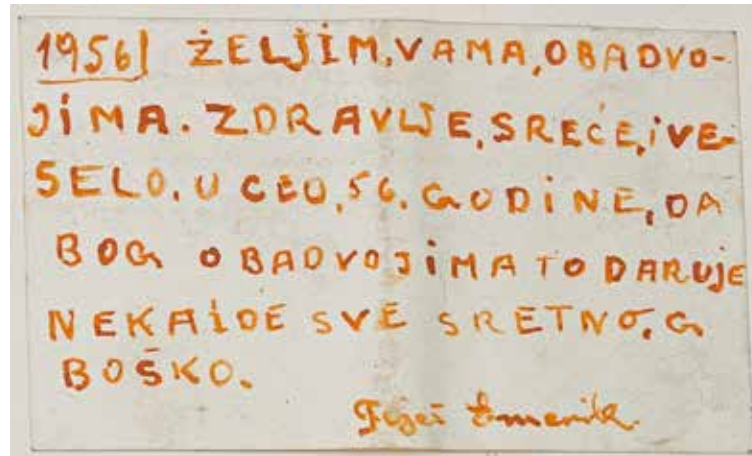 1956) ŻELJİM, VAMA, OBADVO-
JİMA. ZDRAVLJE, SREĆE, İ VE-
SELO. U CEO, 56. GODİNE, DA
BOG OBADVOJİMA TO DARUJE
NEKA İDE SVE SRETNO, G
BOŠKO.
Feješ Emerik.